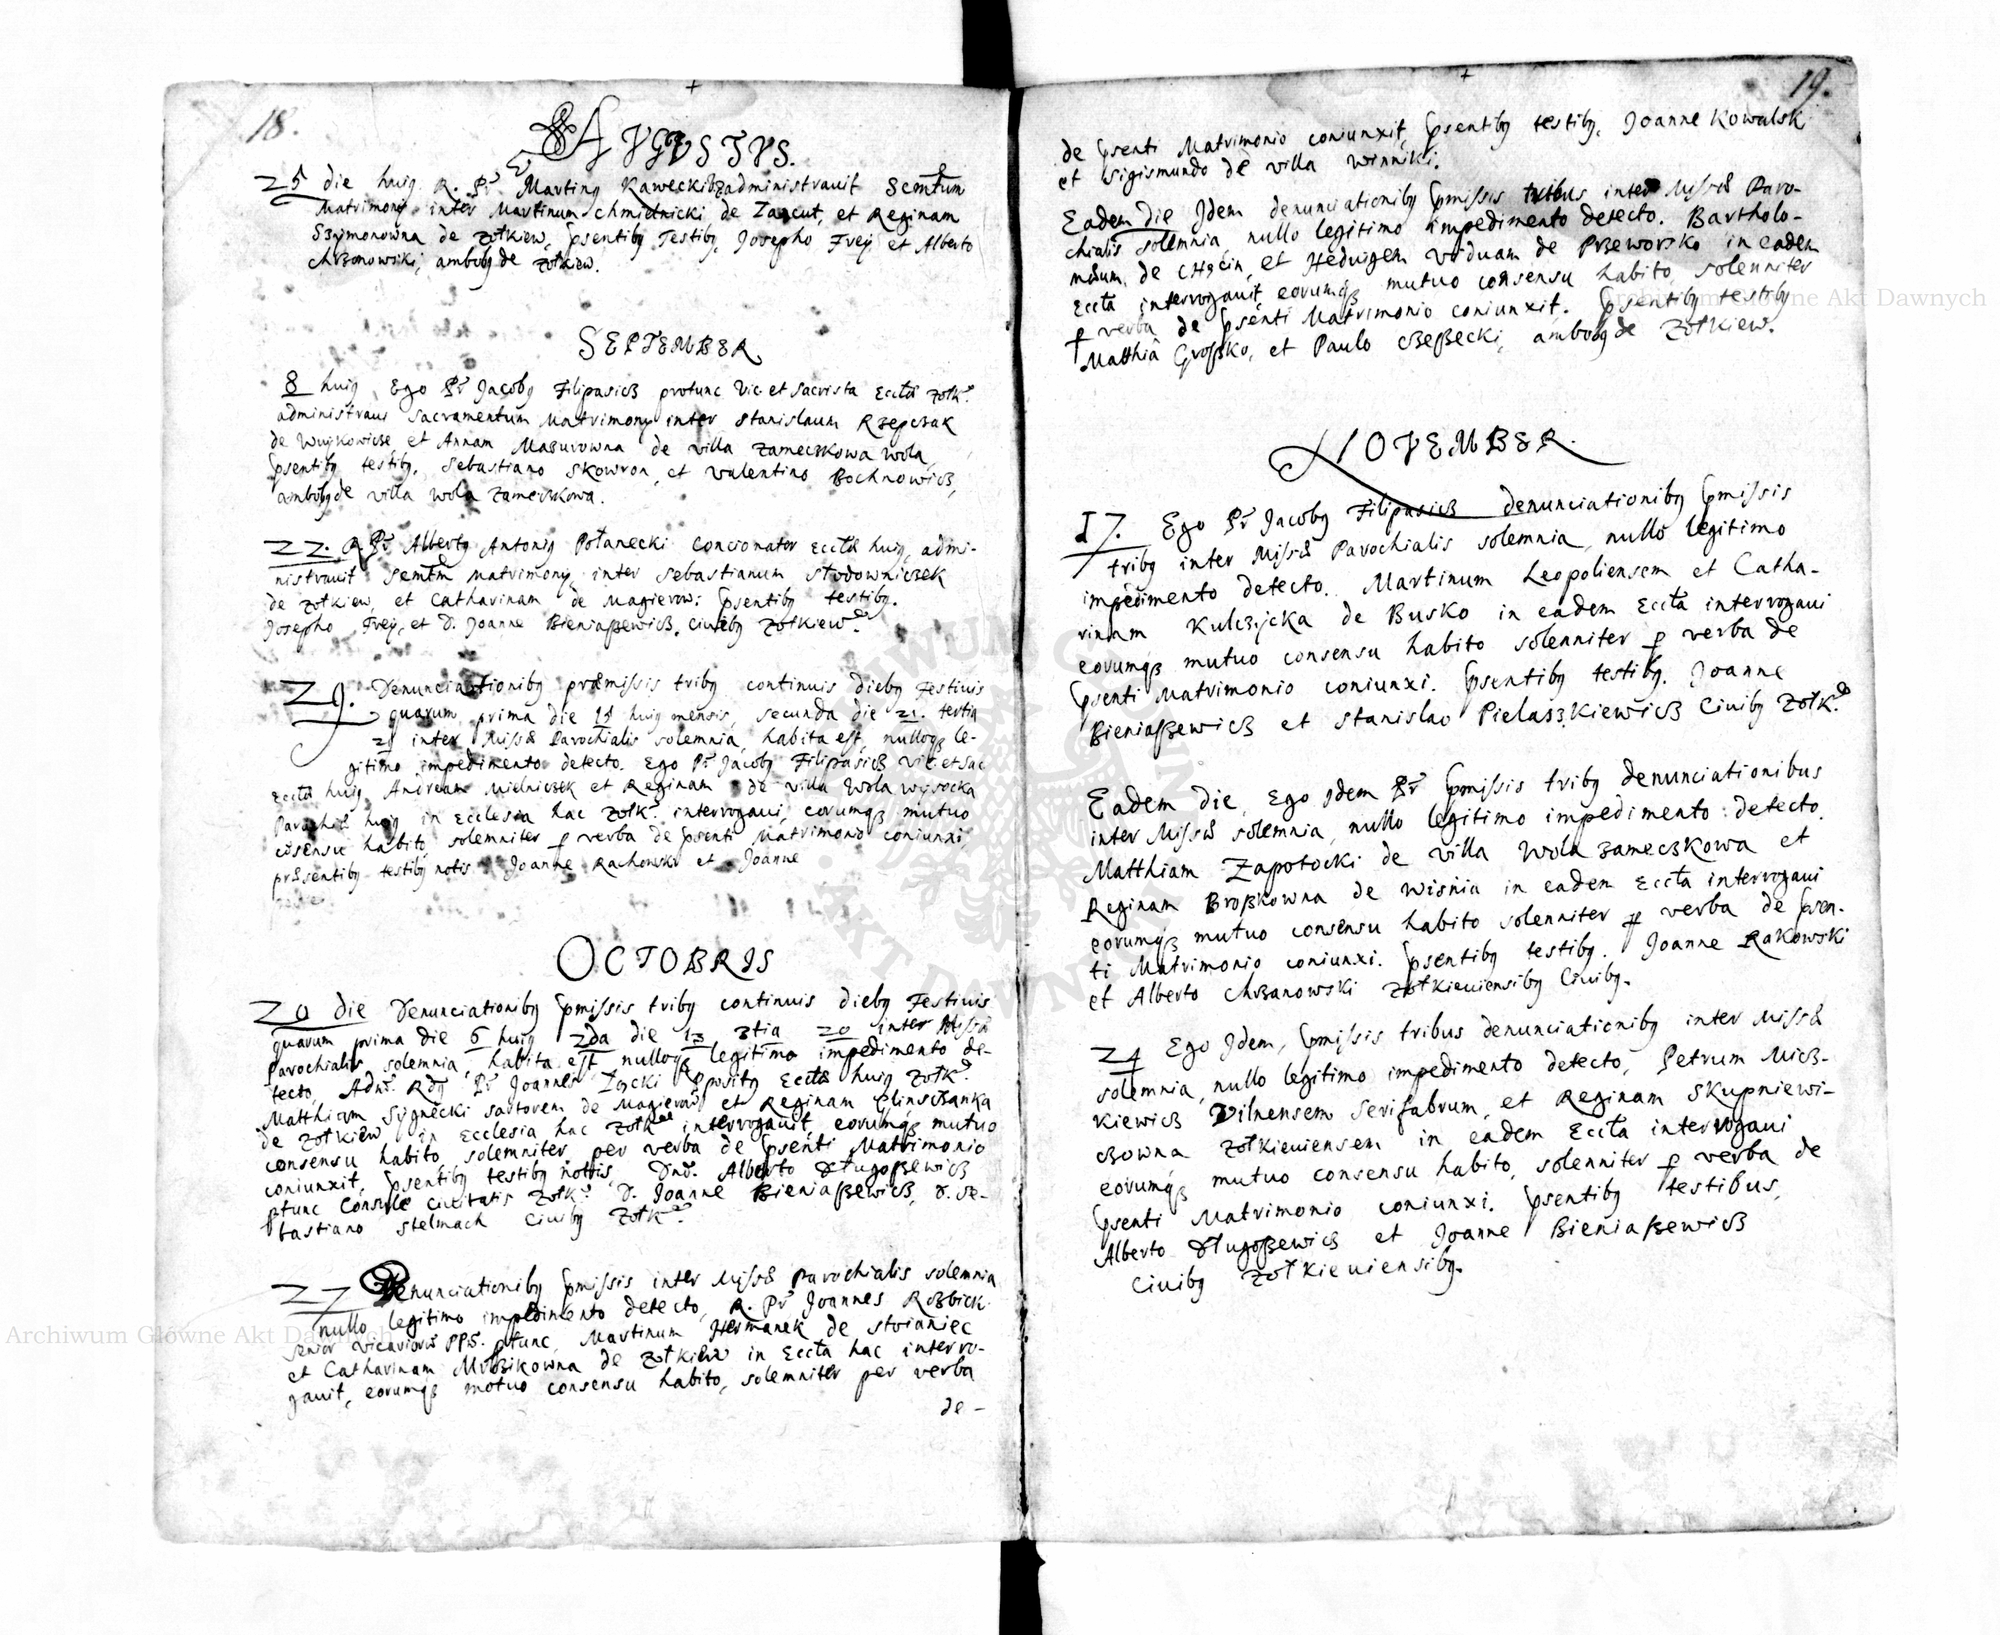 18.
AVGVSTVS.
25 die huig R. Pr Marting Kawecki administravit Scmtum
Matrimony inter Martinum Chmielnicki de Zancut, et Reginam
Szymonowna de Zołkiew, Psentibg Testibg, Josepho Frey et Alberto
Chrzonowski, ambobg de Zołkiew.
SEPTEMBER
8 huig Ego Pr Jacobg Filipasicz protunc Vic. et Sacrista Eccłæ Zołk.
administravi Sacramentum Matrimony inter Stanislaum Rzepczak
de Wujkowicze et Annam Mazurowna de villa Zameczkowa Wola
Psentibg testibg. Sebastiano Skowron, et Valentino Bochnowicz,
ambobg de villa Wola Zameczkowa.
22. R Pr Albertg Antonig Połanecki Concionator Eccłæ huig, admi-
nistravit Scmtm Matrimony inter Sebastianum Słodowniczek
de Zołkiew, et Catharinam de Magierow: Psentibg testibg.
Josepho Frey, et D. Joanne Bieniaszewicz. Civibg Zołkiew.
29. Denunciationibg præmissis tribg continuis diebg Festivis
quarum prima die 15 huig mensis, secunda die 21. tertia
29 inter Missæ Parochialis solemnia, habita est, nulloqz le-
gitimo impedimento detecto. Ego Pr Jacobg Filipasicz Vic. et Sac
Eccłæ huig Andream Mielniczek et Reginam de villa Wola Wysocka
Parochiæ huig in Ecclesia hac Zołk. interrogavi, eorumqz mutuo
cosensu habito, solemniter p verba de Psenti Matrimonio coniunxi
præsentibg testibg notis Joanne Rachowski et Joanne
OCTOBRIS
20 die Denunciationibg Pmissis tribg continuis diebg Festivis
quarum prima die 6 huig 2da die 13 3tia 20 inter Missæ
Parochialis solemnia, habita est nulloqz legitimo impedimento de-
tecto, Adm. Rdg Pr Joannes Præpositg Eccłæ huig Zołk.
Matthiam Sygnecki sartorem de Magierow et Reginam Glinsczanka
de Zołkiew in Ecclesia hac Zołk interrogavit, eorumqz mutuo
consensu habito solemniter per verba de Psenti Matrimonio
coniunxit, Psentibg testibg nottis, Dnd. Alberto Długoszewicz
ptunc Consule Civitatis Zołk. D. Joanne Bieniaszewicz, D. Se-
bastiano Stelmach Civibg Zołk.
27 Denunciationibg Pmissis inter Missæ Parochialis solemnia
nullo legitimo impedimento detecto, R. Pr Joannes Rozbick
Senior Vicariorum PPs. ptunc, Martinum Hermanek de Stoianiec
et Catharinam Mrozikowna de Zołkiew in Eccła hac interro-
gavit, eorumqz motuo consensu habito, solemniter per verba
de -
19.
de Psenti Matrimonio coniunxit, Psentibg testibg. Joanne Kowalsk
et Sigismundo de villa Winniki.
Eadem Die Idem denunciationibg Pmissis tribus inter Missæ Paro-
chialis solemnia, nullo legitimo impedimento detecto. Bartholo-
mæum de Chęcin, et Hedvigem viduam de Przeworsko in eadem
Eccła interrogavit, eorumqz mutuo consensu habito, solenniter
p verba de Psenti Matrimonio coniunxit. Psentibg testibg
Matthia Groszko, et Paulo Czeszecki, ambobg de Zołkiew.
NOVEMBER.
17. Ego Pr Jacobg Filipasicz denunciationibg Pmissis
tribg inter Missæ Parochialis solemnia, nullo legitimo
impedimento detecto. Martinum Leopoliensem et Catha-
rinam Kulczycka de Busko in eadem Eccła interrogavi
eorumqz mutuo consensu habito solenniter p verba de
Psenti Matrimonio coniunxi. Psentibg testibg. Joanne
Bieniaszewicz et Stanislao Pielaszkiewicz Civibg Zołk.
Eadem Die, Ego Idem Pr Pmissis tribg denunciationibus
inter Missæ solemnia, nullo legitimo impedimento detecto.
Matthiam Zapotocki de villa Wola zameczkowa et
Reginam Broszkowna de Wisnia in eadem Eccła interrogavi
eorumqz mutuo consensu habito solenniter p verba de Psen-
ti Matrimonio coniunxi. Psentibg testibg. Joanne Rakowski
et Alberto Chrzanowski Zołkieviensibg Civibg.
24 Ego Idem, Pmissis tribus denunciationibg inter Missæ
solemnia, nullo legitimo impedimento detecto, Petrum Micz-
kiewicz Vilnensem Serifabrum, et Reginam Skupniewi-
czowna Zołkieviensem in eadem Eccła interrogavi
eorumqz mutuo consensu habito, solenniter p verba de
Psenti Matrimonio coniunxi. Psentibg testibus,
Alberto Długoszewicz et Joanne Bieniaszewicz
Civibg Zołkieviensibg.
Archiwum Główne Akt Dawnych
Archiwum Główne Akt Dawnych